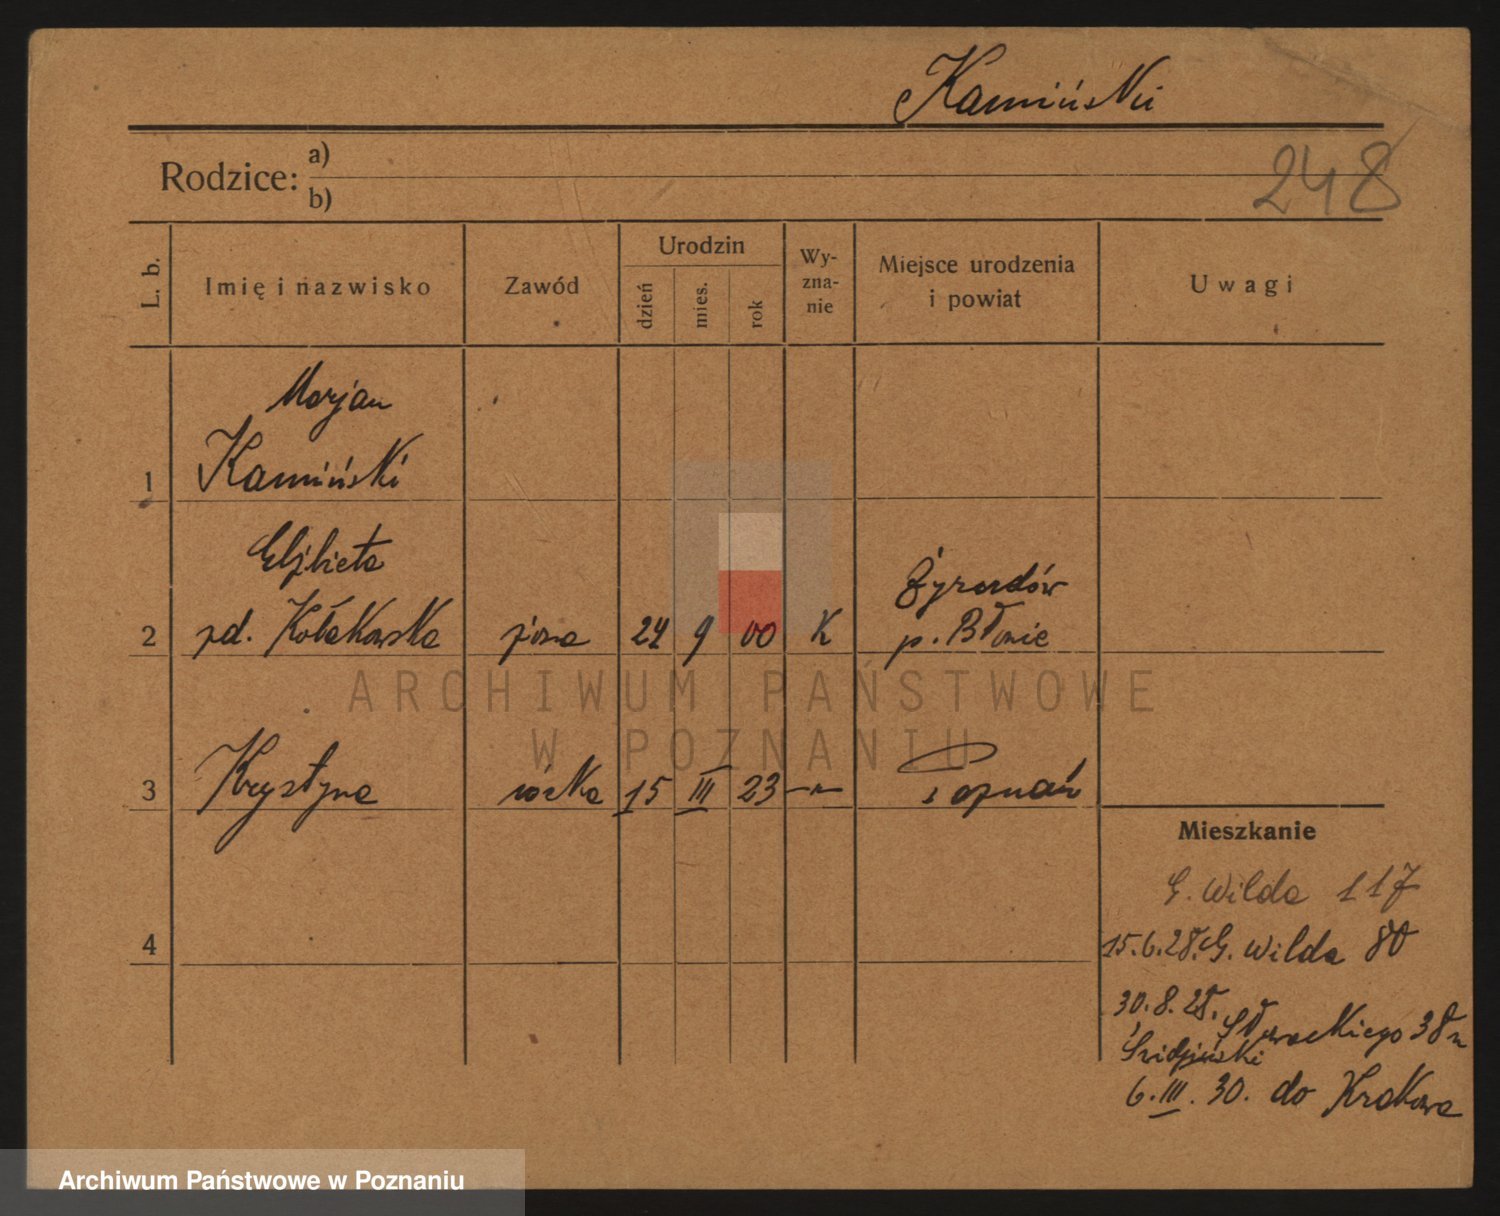 Kamiński
Rodzice: a)
b)
248
L. b.
Imię i nazwisko
Zawód
Urodzin
dzień
mies.
rok
Wy-
zna-
nie
Miejsce urodzenia
i powiat
Uwagi
Marjan
1 Kamiński
Elżbieta
Żyrardów
2 zd. Kołakowska żona 24 9 00 K p. Błonie
3 Krystyna córka 15 III 23 -"- Poznań
Mieszkanie
G. Wilda 117
4
15.6.28. G. Wilda 80
30.8.28. Słowackiego 38
6.III.30. do Krakowa
ARCHIWUM PAŃSTWOWE
W POZNANIU
Archiwum Państwowe w Poznaniu